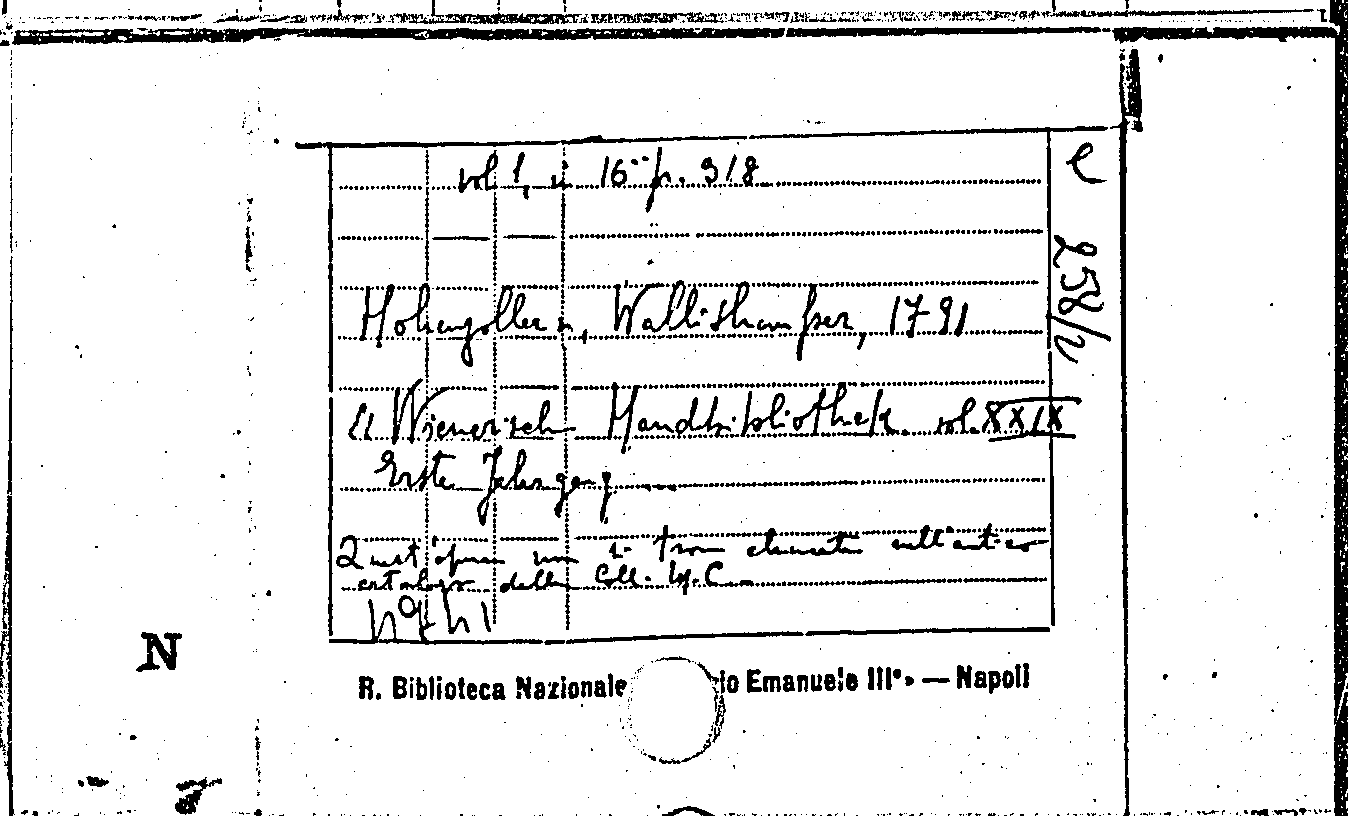 vol 1, in 16° p. 318
Hohenzollern, Wallishausser, 1791
Wienerisch Handbibliothek. vol. XXIX
Erste Jahrgang
Quest'opera non si trova elencata nell'antico
catalogo della Coll. L. C.
N
R. Biblioteca Nazionale io Emanuele III°» — Napoli
e 258/2